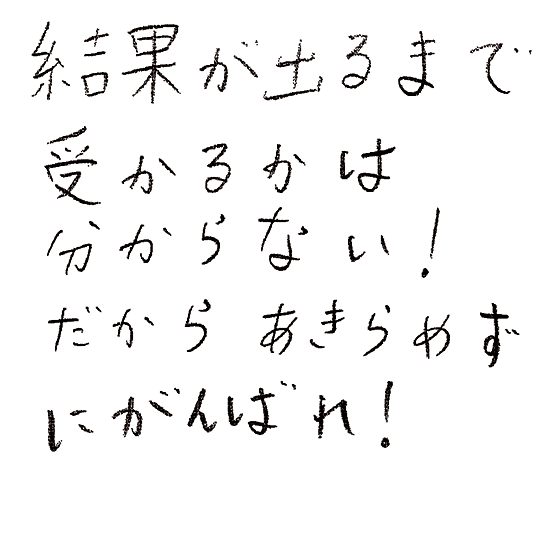 結果が出るまで
受かるかは
分からない!
だからあきらめず
にがんばれ!